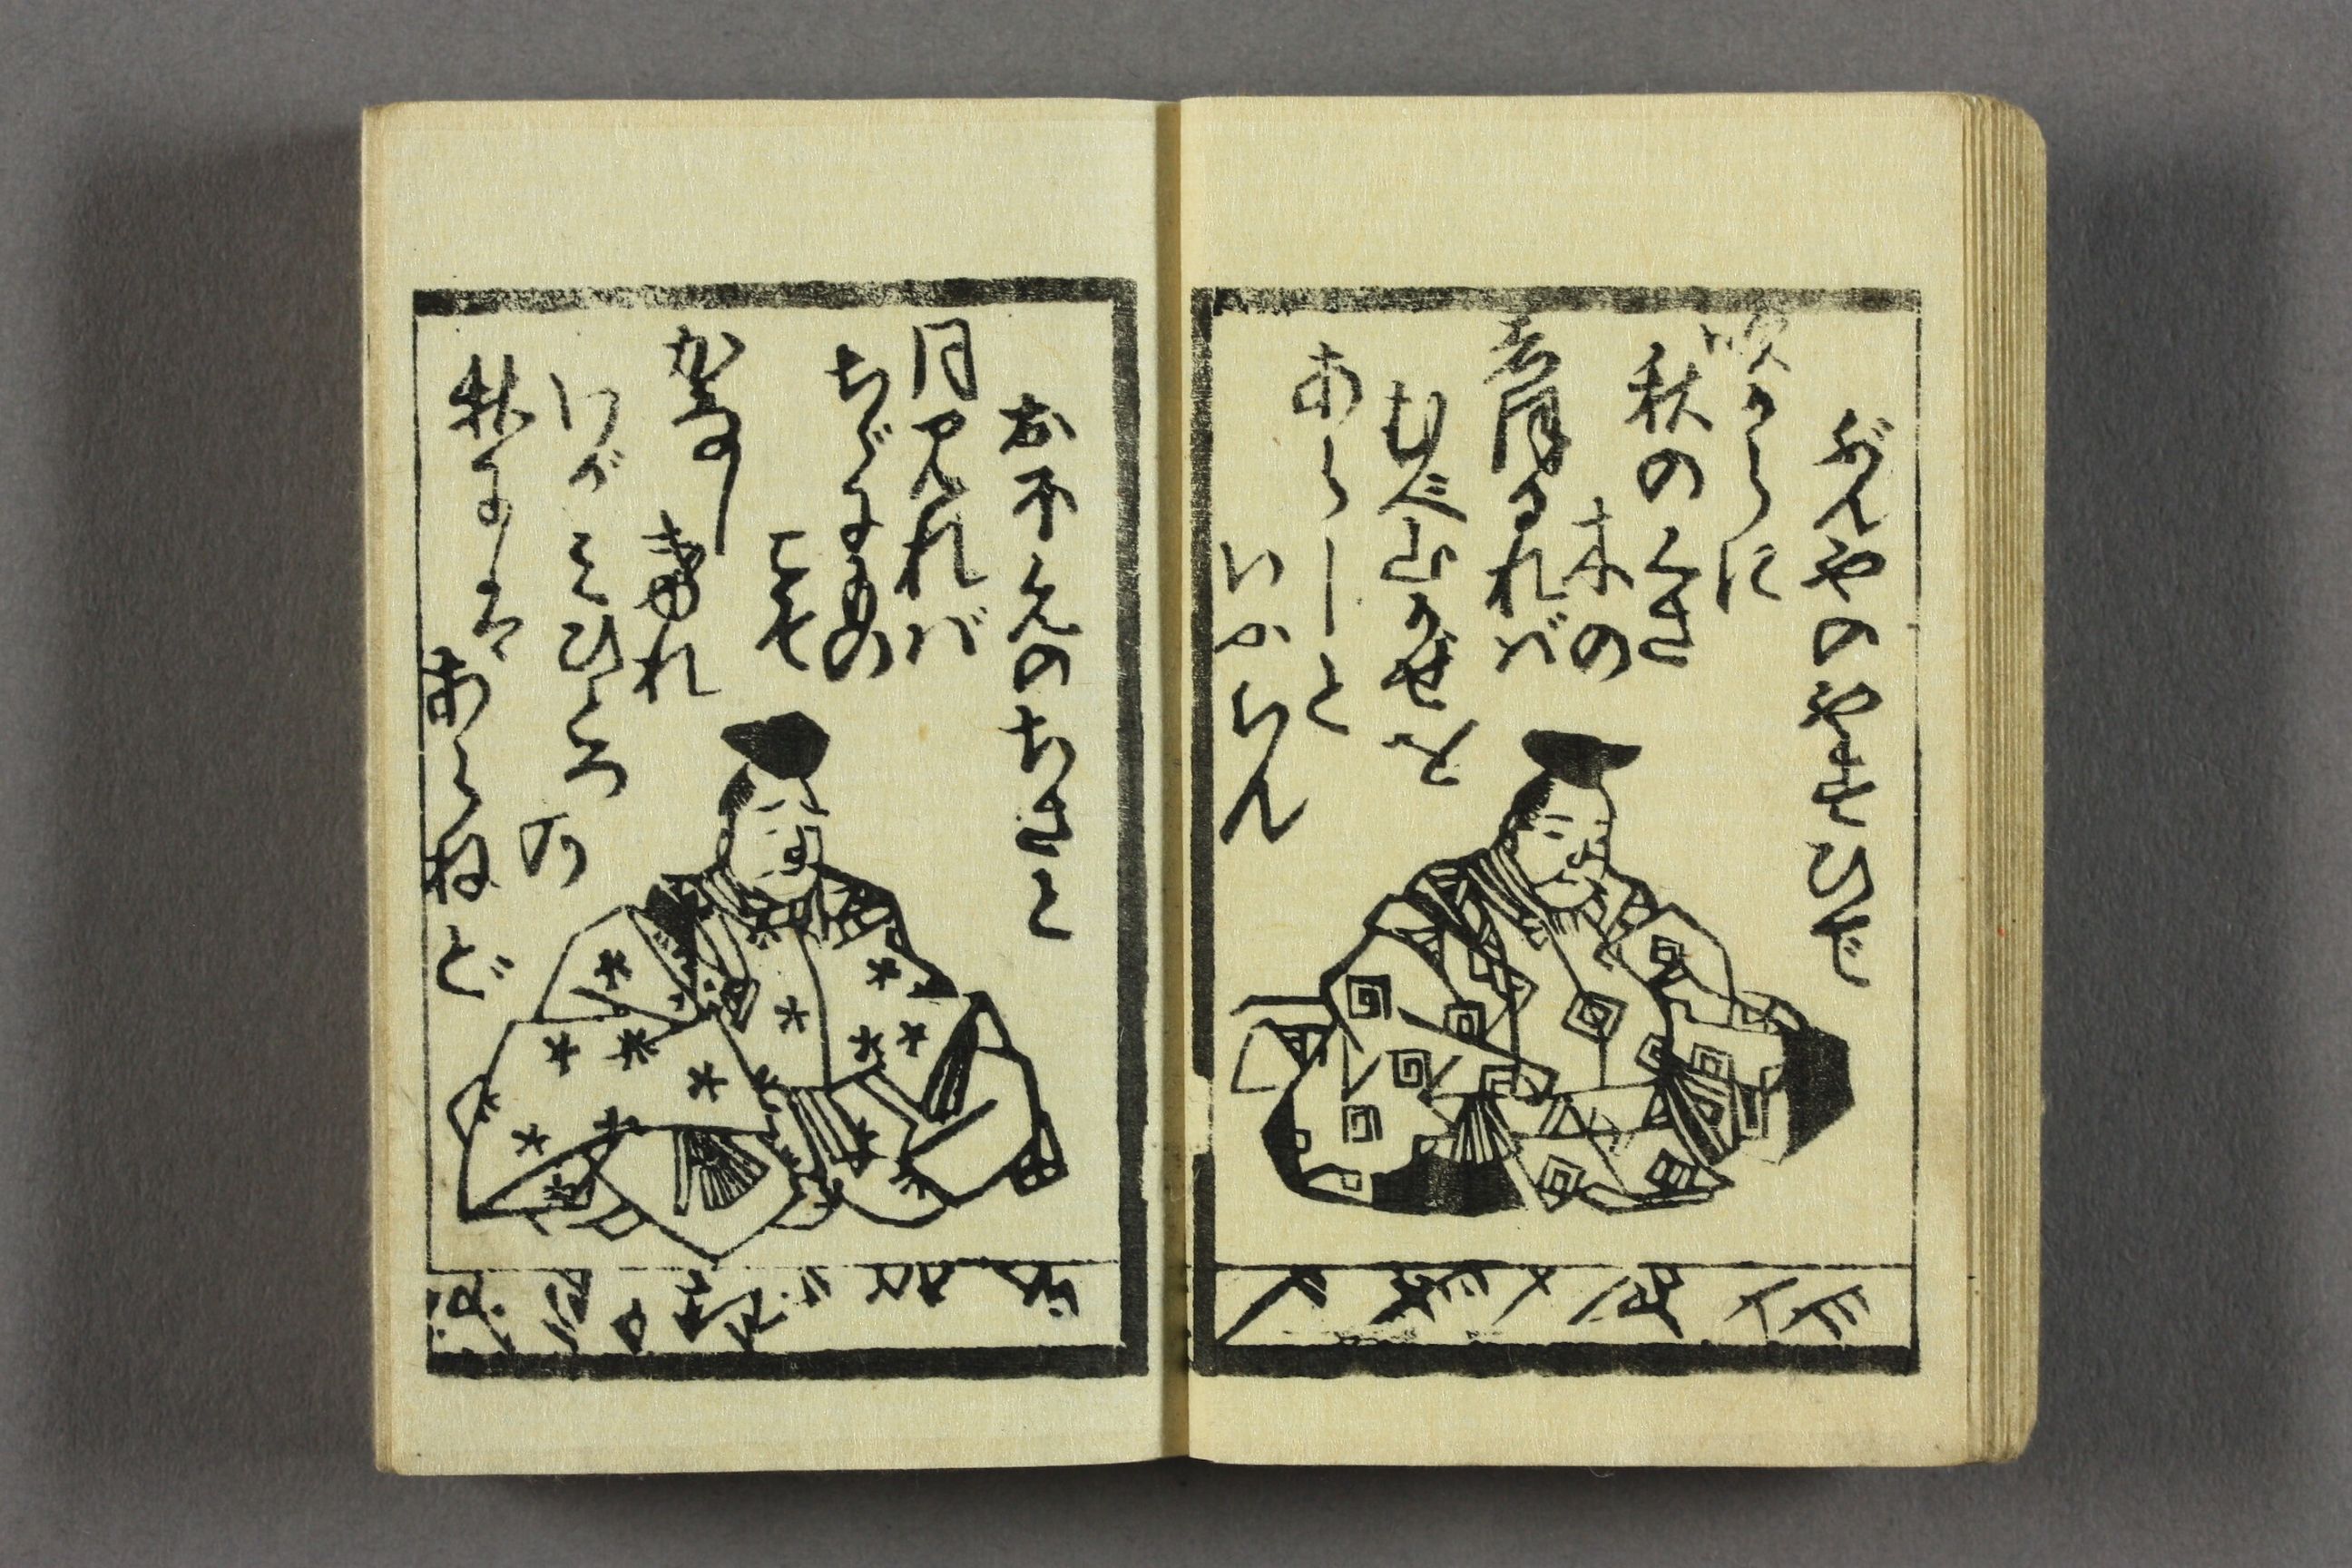 ぶんやのやすひで
吹からに
秋のくさ
木の
志ほるれば
むべ山かぜを
あらしと
いふらん
おほえのちさと
月みれば
ちゞにもの
こそ
かなし
けれ
わがみひとつ
の
秋には
あらねど